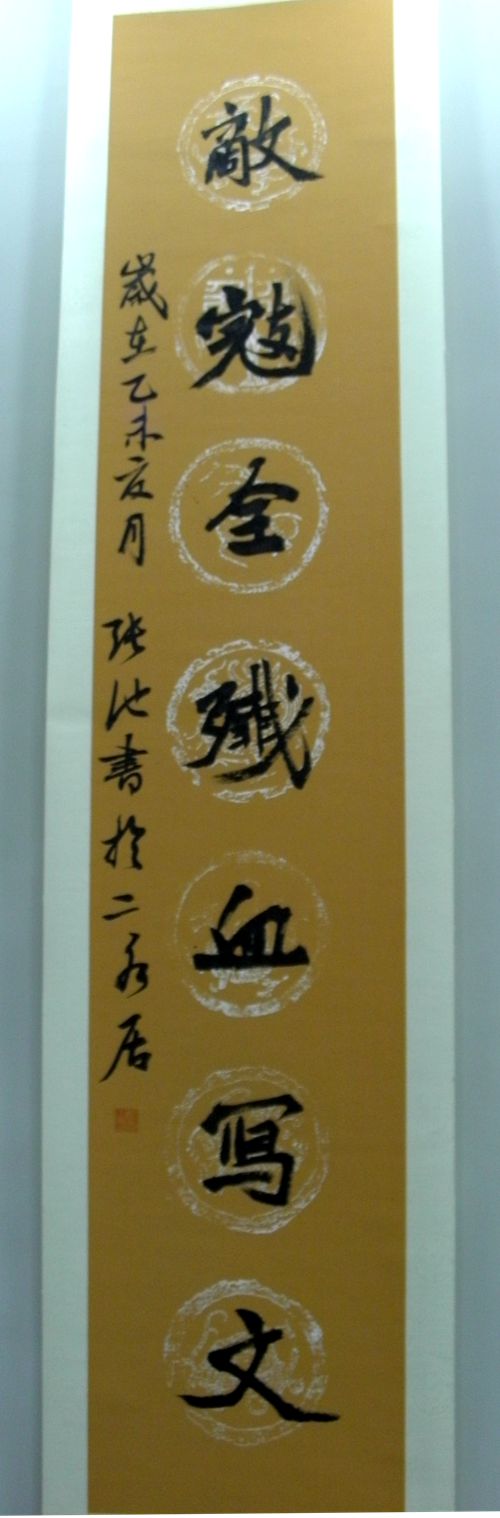 敵寇全殲血寫文
歲在乙未夏月 張池書於二永居